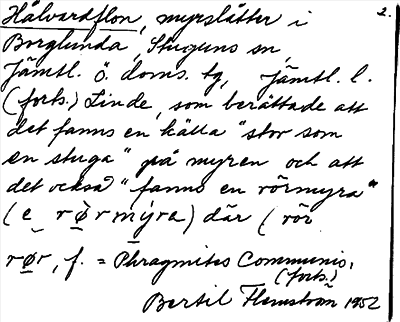 Hälvardflon, myrslåtter i 2.
Borglunda, Stuguns sn,
Jämtl. ö. doms. tg, Jämtl. l.
(forts.) Linde, som berättade att
det fanns en källa "stor som
en stuga" på myren och att
det också "fanns en rörmyra"
(e rør mýra) där (rör
rør, f. = Phragmites Communis,
(forts.)
Bertil Flemström 1952